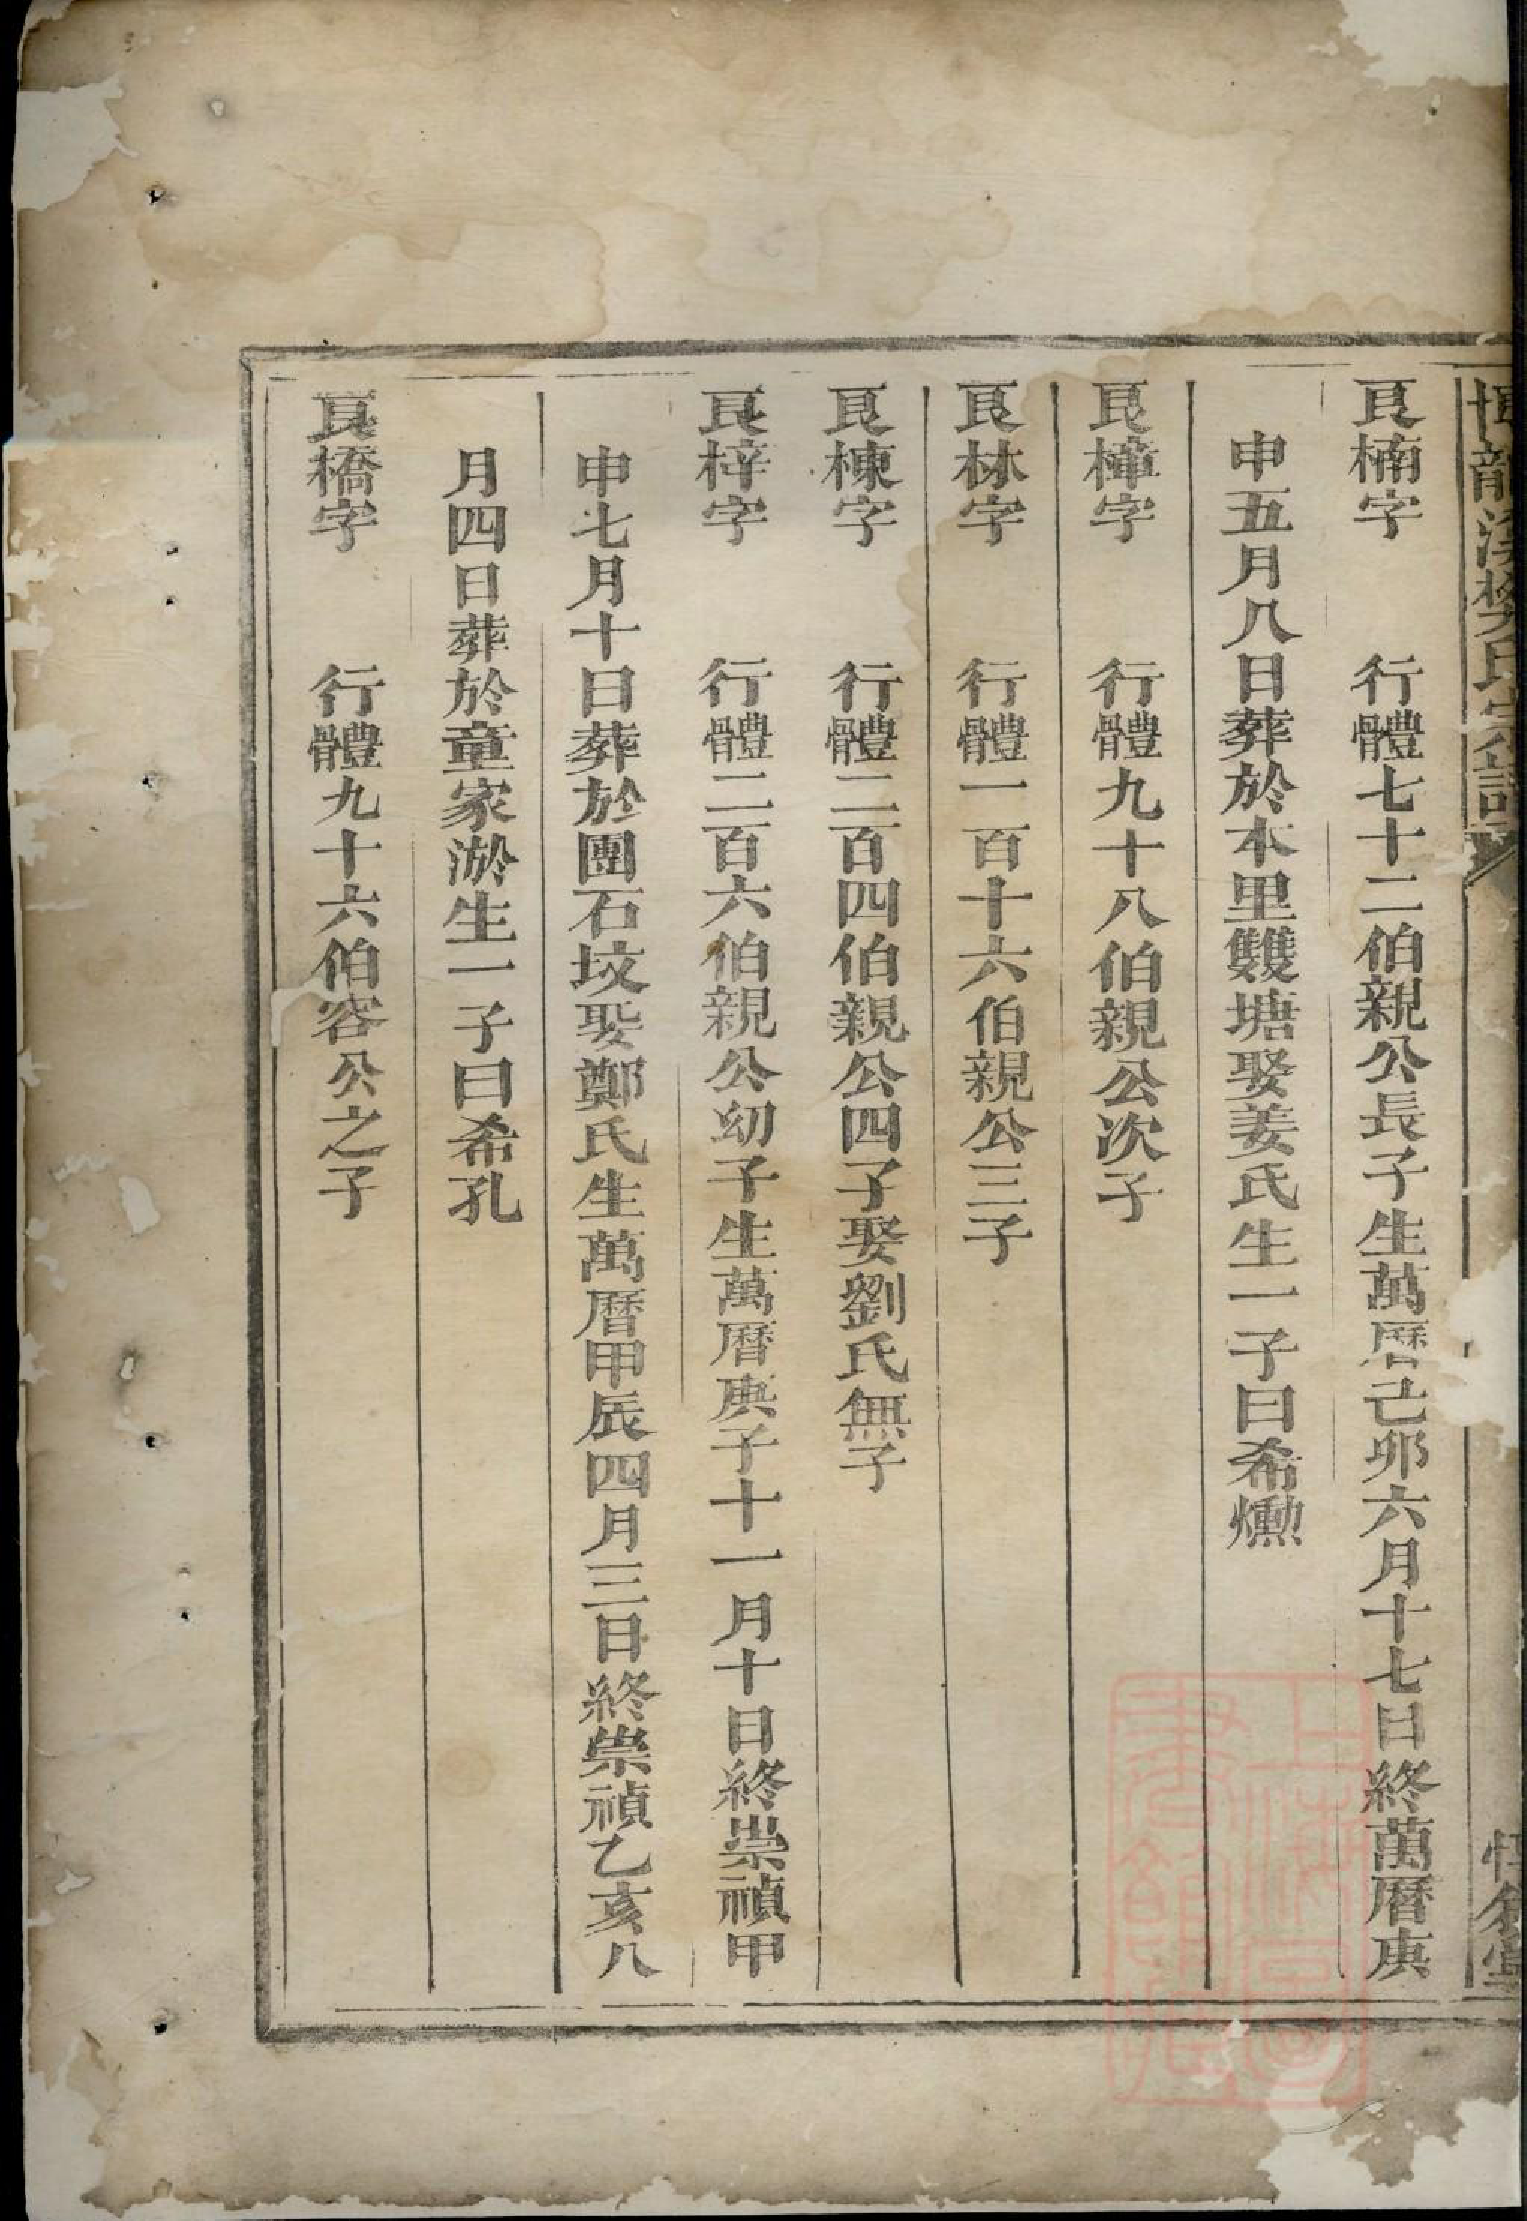 龍溪樊氏宗譜
良楠字 行體七十二伯親公長子生萬曆己卯六月十七日終萬曆庚
申五月八日葬於本里雙塘娶姜氏生一子曰希燻
良樟字 行體九十八伯親公次子
良林字 行體一百十六伯親公三子
良棟字 行體二百四伯親公四子娶劉氏無子
良梓字 行體二百六伯親公幼子生萬曆庚子十一月十日終崇禎甲
申七月十日葬於團石坟娶鄭氏生萬曆甲辰四月三日終崇禎乙亥八
月四日葬於童家淤生一子曰希孔
良橋字 行體九十六伯容公之子
上海圖書館藏